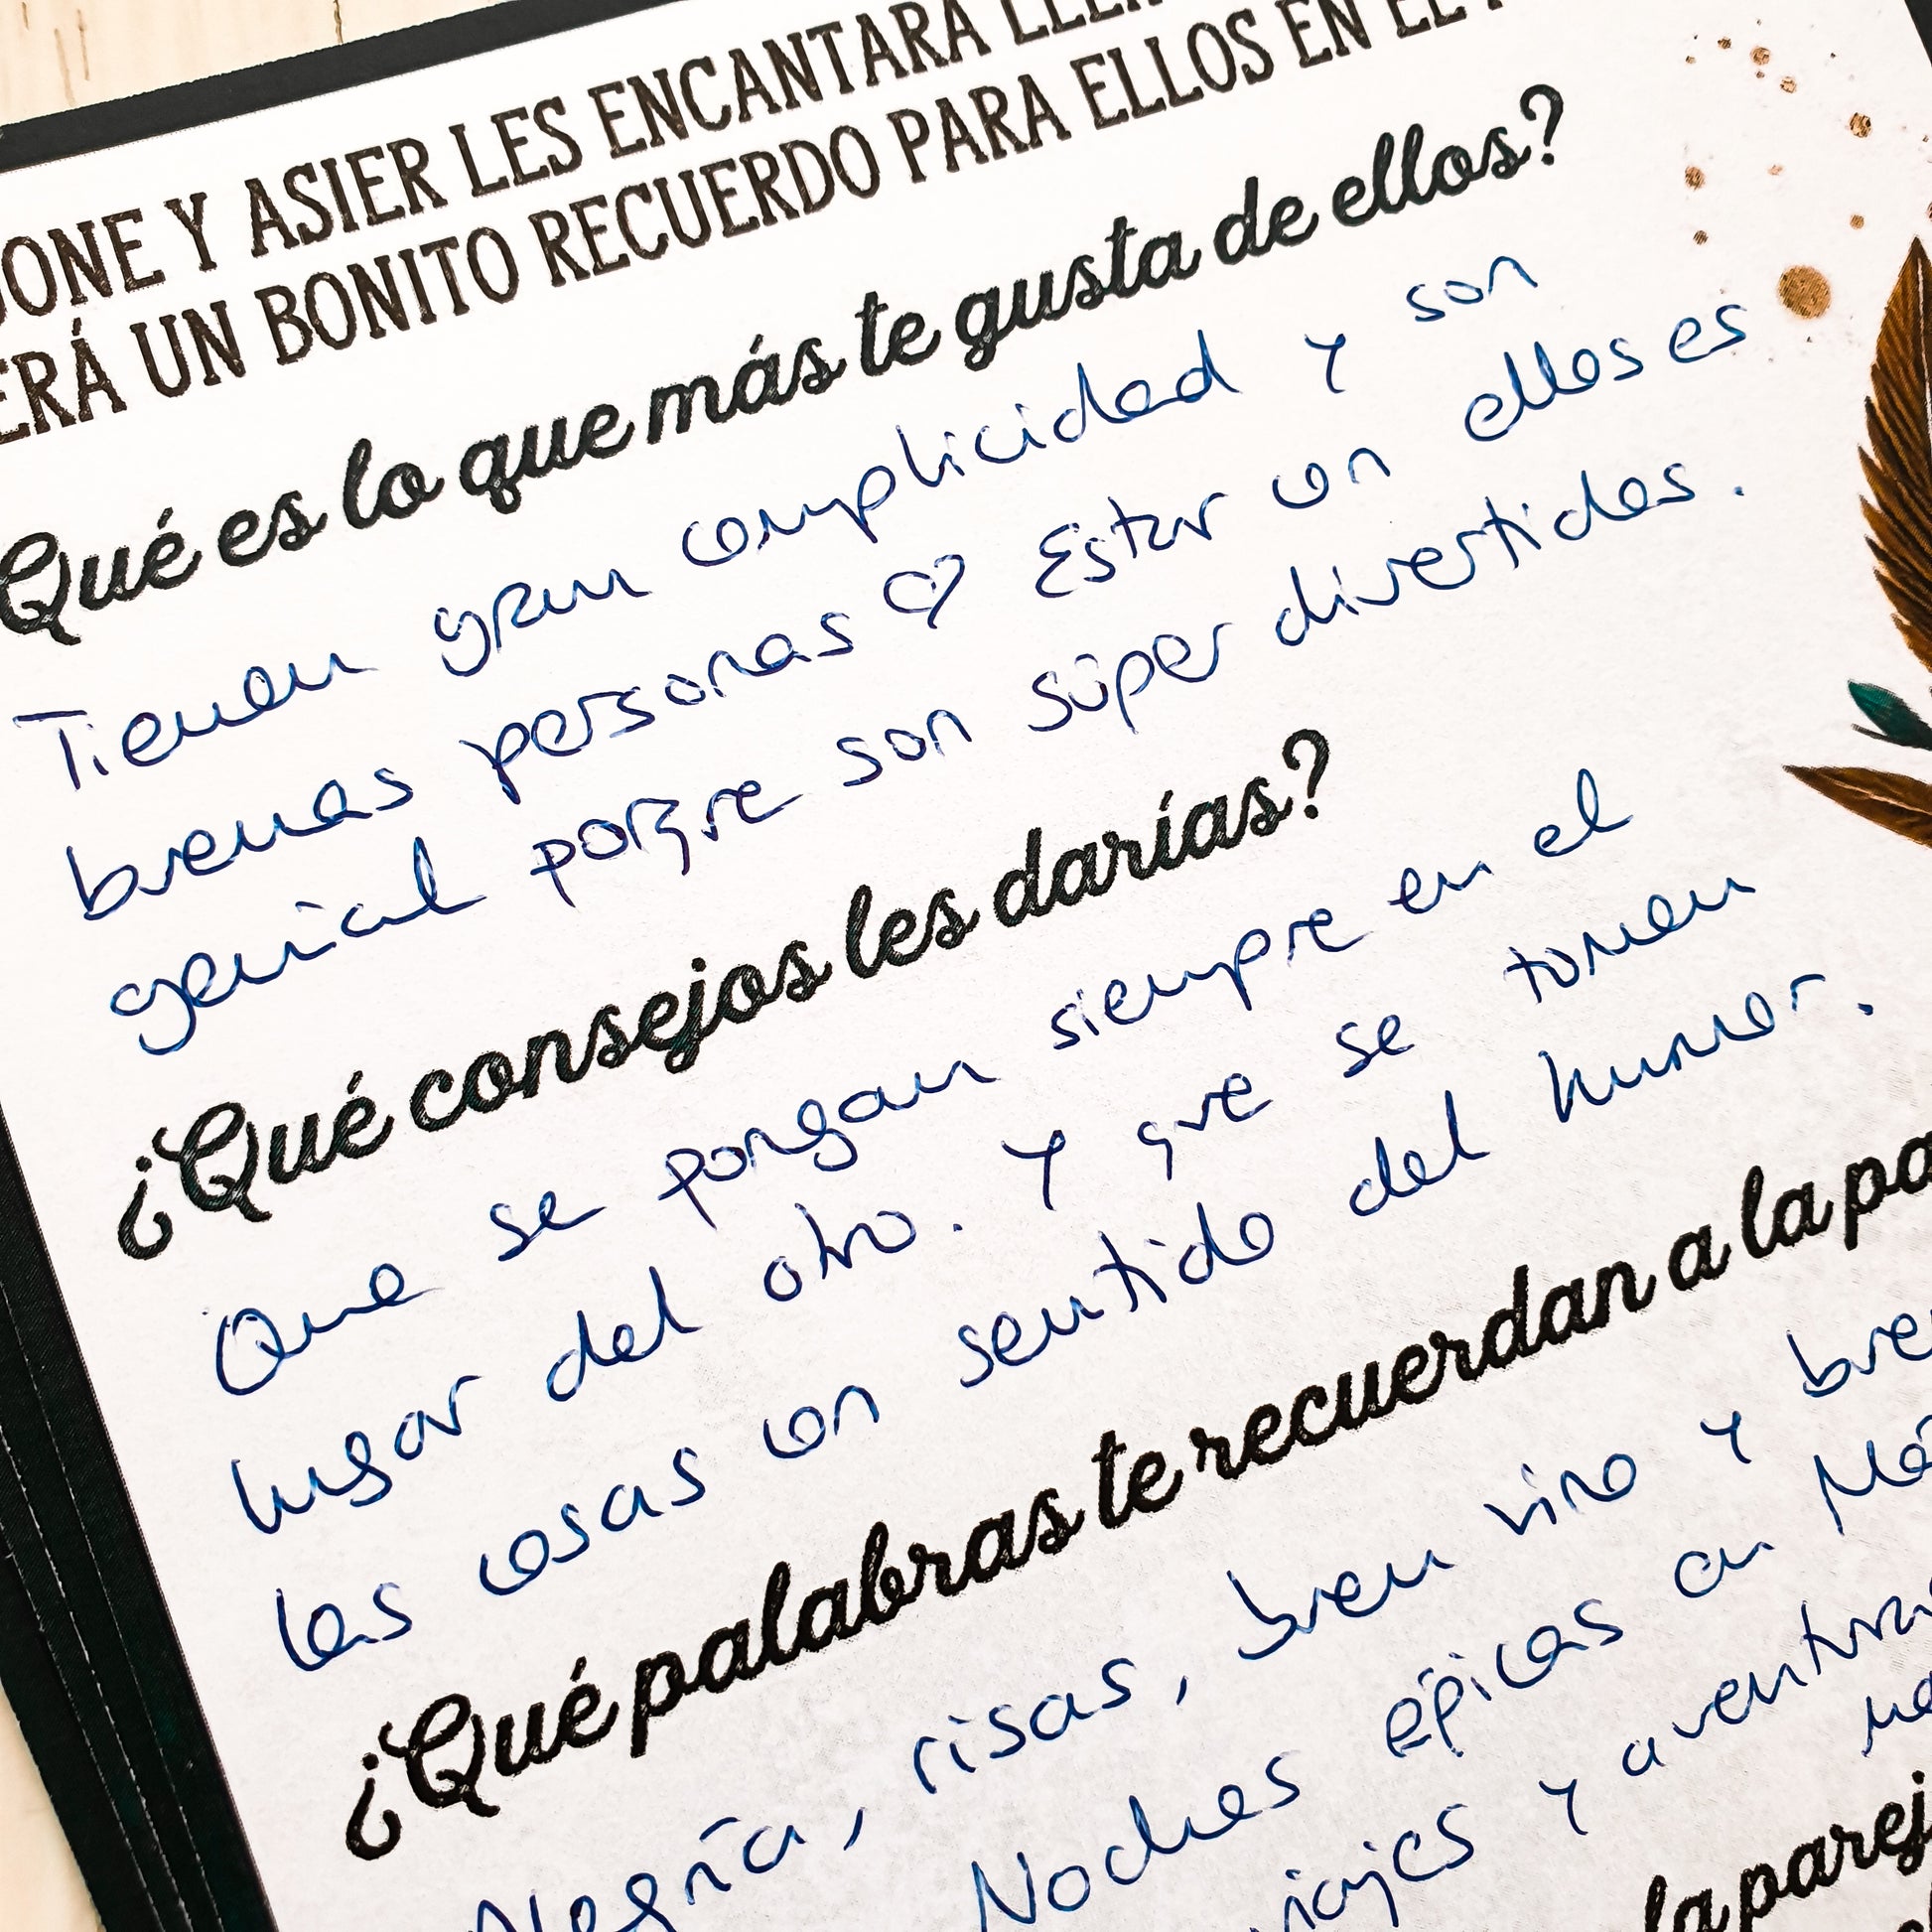 JONE Y ASIER LES ENCANTARÁ
ERÁ UN BONITO RECUERDO PARA ELLOS EN EL
Qué es lo que más te gusta de ellos?
Tienen gran complicidad y son
buenas personas ♡ Estar con ellos es
genial porque son súper divertidos.
¿Qué consejos les darías?
Que se pongan siempre en el
lugar del otro. Y que se tomen
las cosas con sentido del humor.
¿Qué palabras te recuerdan a la
Alegría, risas, buen vino y
Noches épicas en
viajes y
la